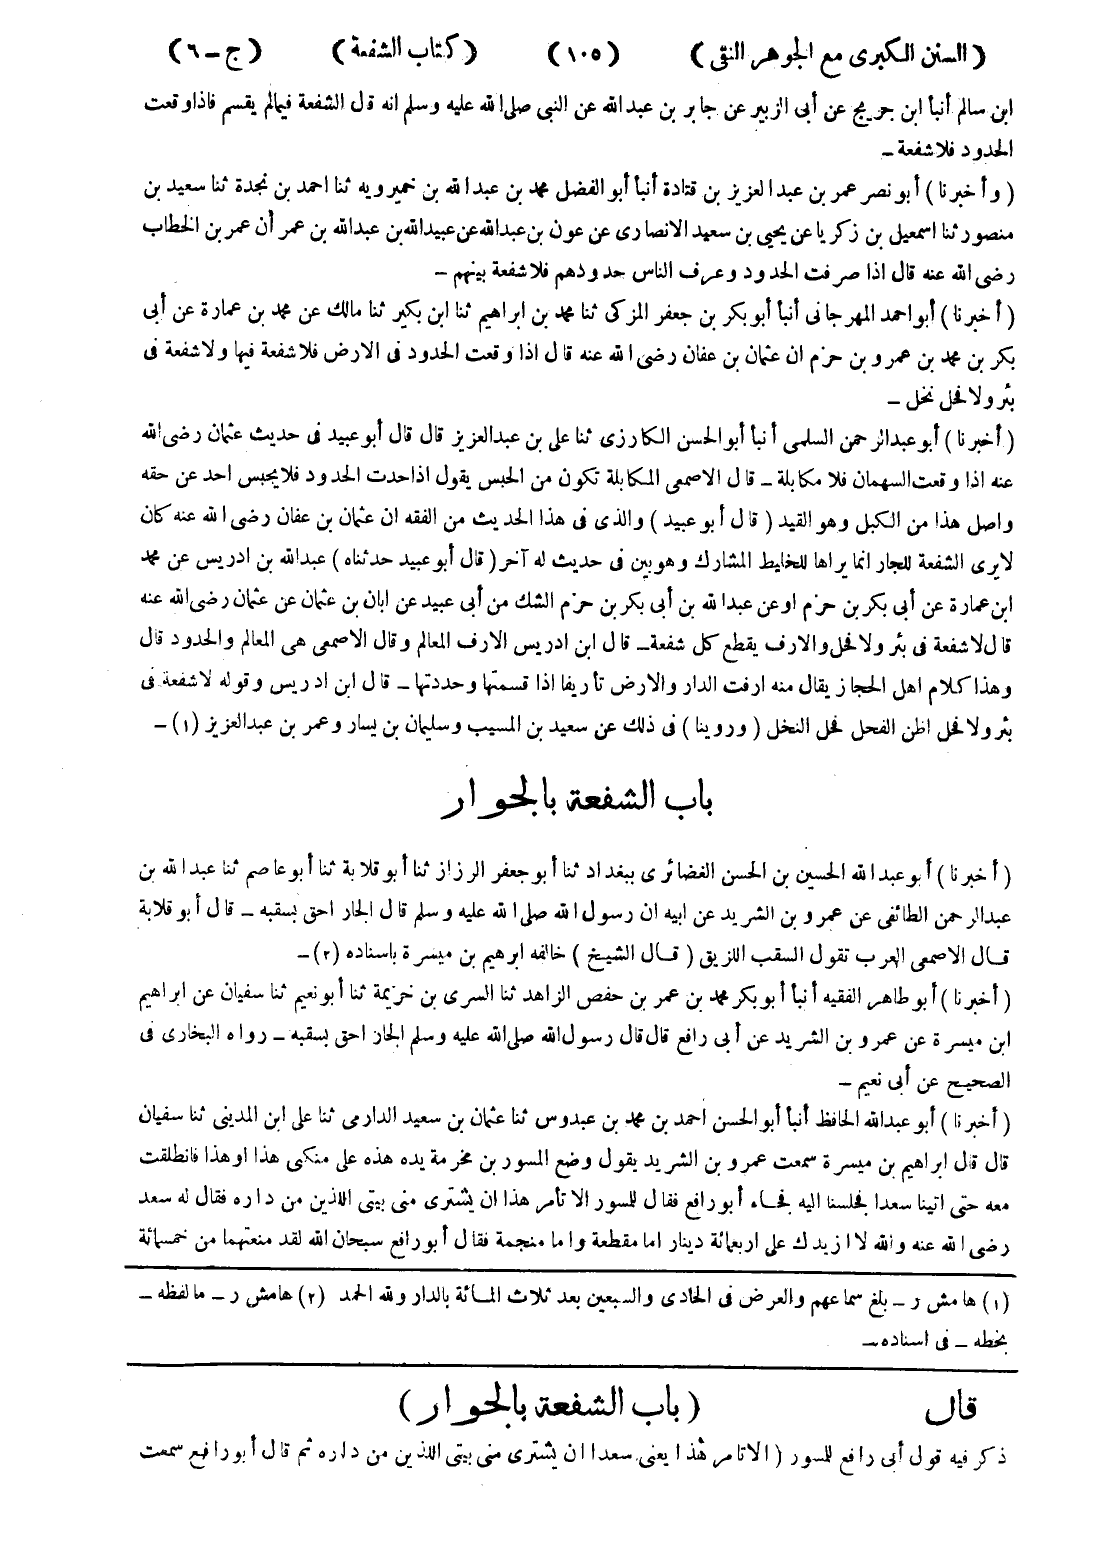 (السنن الكبرى مع الجوهر النقى) (١٠٥) (كتاب الشفعة) (ج - ٦)
ابن سالم أنبأ ابن جريج عن أبى الزبير عن جابر بن عبد الله عن النبى صلى الله عليه وسلم انه قال الشفعة فيما لم يقسم فاذا وقعت
الحدود فلا شفعة -
(وأخبرنا) أبو نصر عمر بن عبد العزيز بن قتادة أنبأ أبو الفضل محمد بن عبد الله بن خميرويه ثنا احمد بن نجدة ثنا سعيد بن
منصور ثنا اسمعيل بن زكريا عن يحيى بن سعيد الانصارى عن عون بن عبدالله عن عبيدالله بن عبدالله بن عمر أن عمر بن الخطاب
رضى الله عنه قال اذا صرفت الحدود وعرف الناس حدودهم فلا شفعة بينهم -
(أخبرنا) أبو احمد المهرجانى أنبأ أبو بكر بن جعفر المزكى ثنا محمد بن ابراهيم ثنا ابن بكير ثنا مالك عن محمد بن عمارة عن أبى
بكر بن محمد بن عمرو بن حزم ان عثمان بن عفان رضى الله عنه قال اذا وقعت الحدود فى الارض فلا شفعة فيها ولا شفعة فى
بئر ولا فحل نخل -
(أخبرنا) أبو عبد الرحمن السلمى أنبأ أبو الحسن الكارزى ثنا على بن عبد العزيز قال قال أبو عبيد فى حديث عثمان رضى الله
عنه اذا وقعت السهمان فلا مكابلة - قال الاصمعى المكابلة تكون من الحبس يقول اذا حدت الحدود فلا يحبس احد عن حقه
واصل هذا من الكبل وهو القيد (قال أبو عبيد) والذى فى هذا الحديث من الفقه ان عثمان بن عفان رضى الله عنه كان
لا يرى الشفعة للجار انما يراها للخليط المشارك وهو بين فى حديث له آخر (قال أبو عبيد حدثناه) عبد الله بن ادريس عن محمد
ابن عمارة عن أبى بكر بن حزم او عن عبد الله بن أبى بكر بن حزم الشك من أبى عبيد عن ابان بن عثمان عن عثمان رضى الله عنه
قال لا شفعة فى بئر ولا فحل والارف يقطع كل شفعة - قال ابن ادريس الارف المعالم وقال الاصمعى هى المعالم والحدود قال
وهذا كلام اهل الحجاز يقال منه ارفت الدار والارض تأريفا اذا قسمتها وحددتها - قال ابن ادريس وقوله لا شفعة فى
بئر ولا فحل اظن الفحل فحل النخل (وروينا) فى ذلك عن سعيد بن المسيب وسليمان بن يسار وعمر بن عبد العزيز (١) -
باب الشفعة بالجوار
(أخبرنا) أبو عبد الله الحسين بن الحسن الغضائرى ببغداد ثنا أبو جعفر الرزاز ثنا أبو قلابة ثنا أبو عاصم ثنا عبد الله بن
عبد الرحمن الطائفى عن عمرو بن الشريد عن ابيه ان رسول الله صلى الله عليه وسلم قال الجار احق بسقبه - قال أبو قلابة
قال الاصمعى العرب تقول السقب اللزيق (قال الشيخ) خالفه ابرهيم بن ميسرة باسناده (٢) -
(أخبرنا) أبو طاهر الفقيه أنبأ أبو بكر محمد بن عمر بن حفص الزاهد ثنا السرى بن خزيمة ثنا أبو نعيم ثنا سفيان عن ابراهيم
ابن ميسرة عن عمرو بن الشريد عن أبى رافع قال قال رسول الله صلى الله عليه وسلم الجار احق بسقبه - رواه البخارى فى
الصحيح عن أبى نعيم -
(أخبرنا) أبو عبد الله الحافظ أنبأ أبو الحسن احمد بن محمد بن عبدوس ثنا عثمان بن سعيد الدارمى ثنا على ابن المدينى ثنا سفيان
قال قال ابراهيم بن ميسرة سمعت عمرو بن الشريد يقول وضع المسور بن مخرمة يده هذه على منكبى هذا او هذا فانطلقت
معه حتى اتينا سعدا فجلسنا اليه فجاء أبو رافع فقال للسور الا تأمر هذا ان يشترى منى بيتى اللذين من داره فقال له سعد
رضى الله عنه والله لا ازيدك على اربعمائة دينار اما مقطعة واما منجمة فقال أبو رافع سبحان الله لقد منعتهما من خمسمائة
(١) هامش ر - بلغ سماعهم والعرض فى الحادى والسبعين بعد ثلاث المائة بالدار ولله الحمد (٢) هامش ر - ما لفظه -
بخطه - فى اسناده -
قال (باب الشفعة بالجوار)
ذكر فيه قول أبى رافع للسور (الا تامر هٰذا يعنى سعدا ان يشترى منى بيتى اللذين من داره ثم قال أبو رافع سمعت